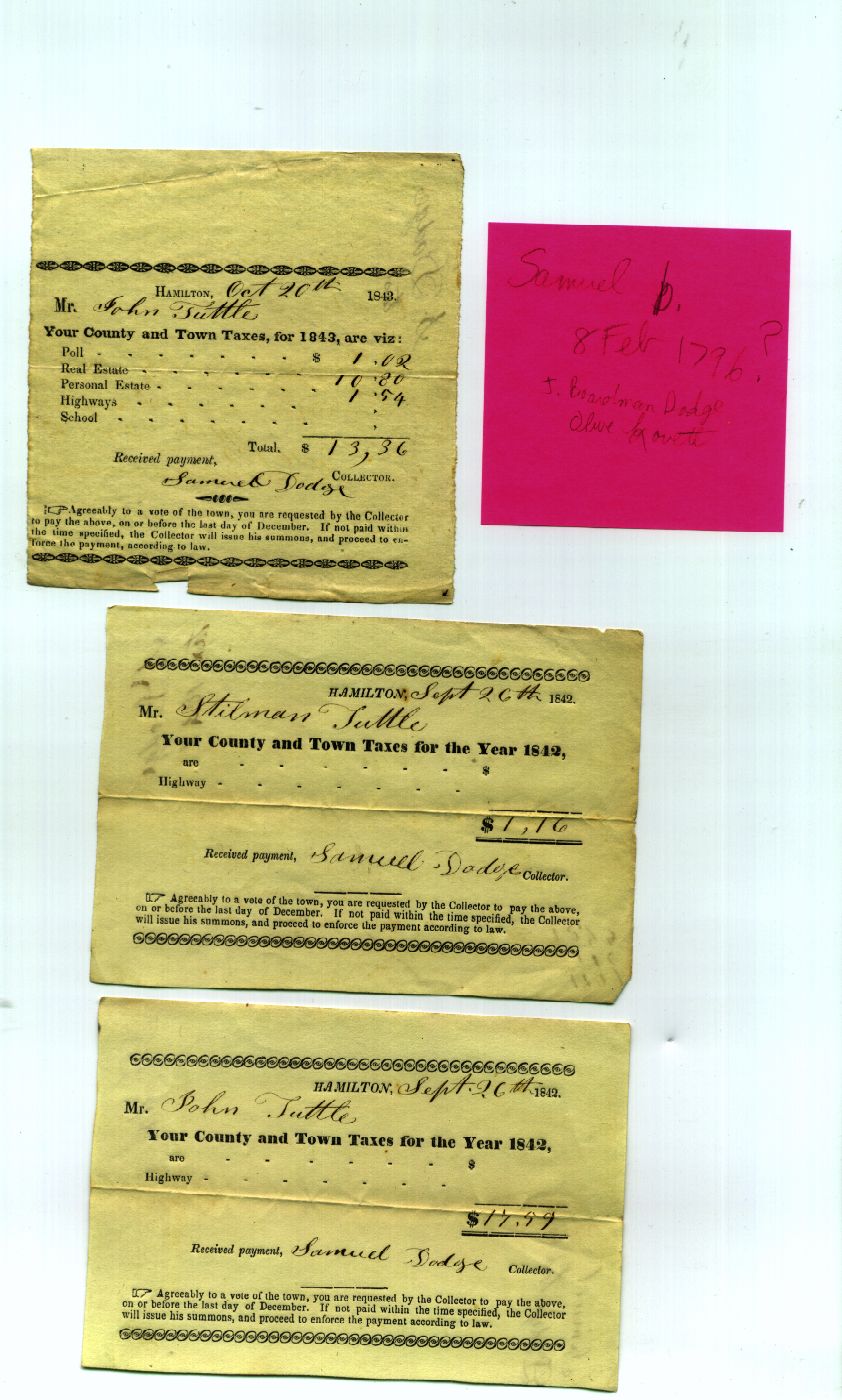 HAMILTON, Oct 20th 1843.
Mr. John Tuttle
Your County and Town Taxes, for 1843, are viz:
Poll - - - - - - - $ 1.02
Real Estate - - - - - - 10.80
Personal Estate - - - - - 1.54
Highways - - - - - -
School - - - - - -
Total. $ 13,36
Received payment,
Samuel Dodge COLLECTOR.
☞Agreeably to a vote of the town, you are requested by the Collector
to pay the above, on or before the last day of December. If not paid within
the time specified, the Collector will issue his summons, and proceed to en-
force the payment, according to law.
Samuel b.
8 Feb 1796?
J. Boardman Dodge
Olive
HAMILTON, Sept 26th 1842.
Mr. Stilman Tuttle
Your County and Town Taxes for the Year 1842,
are - - - - - - $
Highway - - - - - - -
$1,16
Received payment, Samuel Dodge Collector.
☞ Agreeably to a vote of the town, you are requested by the Collector to pay the above,
on or before the last day of December. If not paid within the time specified, the Collector
will issue his summons, and proceed to enforce the payment according to law.
HAMILTON, Sept. 26th 1842.
Mr. John Tuttle
Your County and Town Taxes for the Year 1842,
are - - - - - - $
Highway - - - - - - -
$17.59
Received payment, Samuel Dodge Collector.
☞ Agreeably to a vote of the town, you are requested by the Collector to pay the above,
on or before the last day of December. If not paid within the time specified, the Collector
will issue his summons, and proceed to enforce the payment according to law.